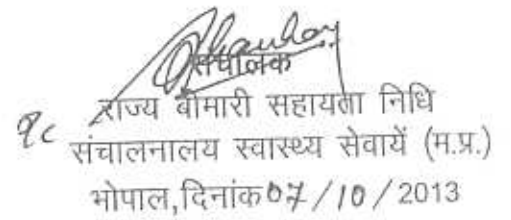 संचालक
राज्य बीमारी सहायता निधि
संचालनालय स्वास्थ्य सेवायें (म.प्र.)
भोपाल,दिनांक 07/10/2013